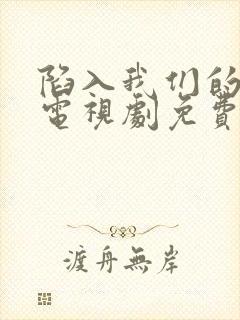 陷入我们的
電視劇免費
渡舟無岸